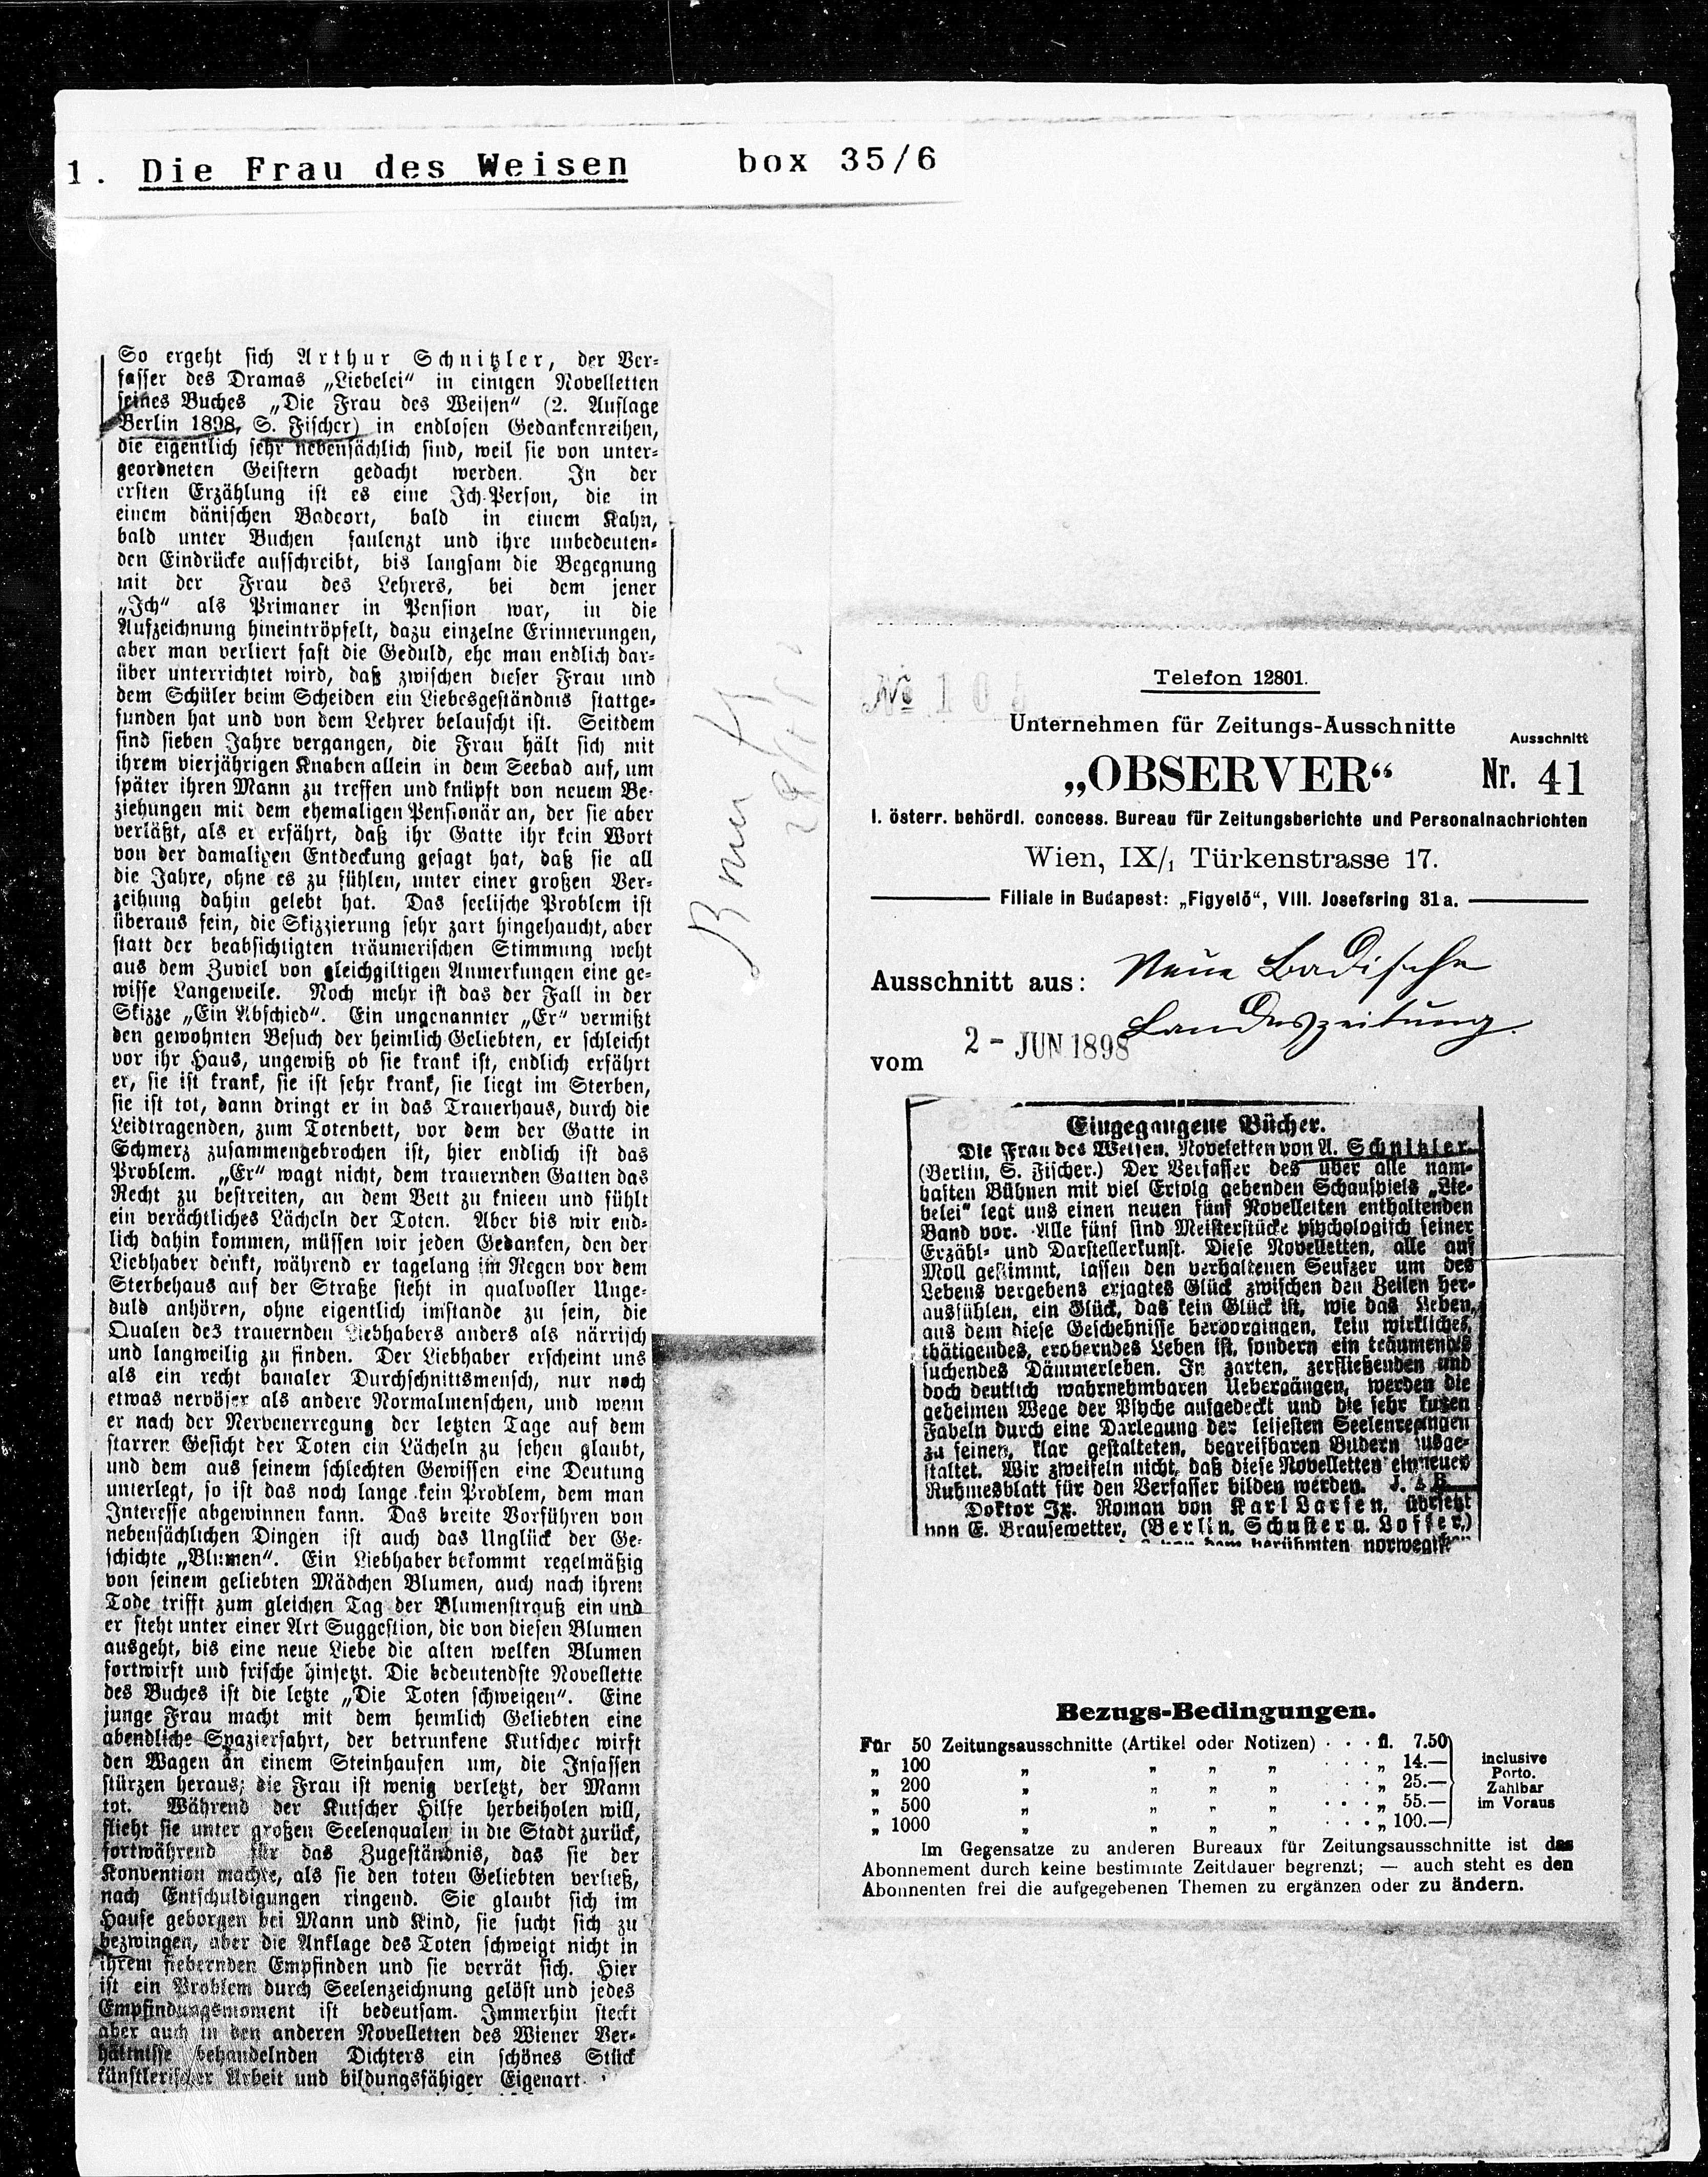 1. Die Frau des Weisen box 35/6
So ergeht sich Arthur Schnitzler, der Ver-
fasser des Dramas „Liebelei“ in einigen Novelletten
seines Buches „Die Frau des Weisen“ (2. Auflage
Berlin 1898, S. Fischer) in endlosen Gedankenreihen,
die eigentlich sehr nebensächlich sind, weil sie von unter-
geordneten Geistern gedacht werden. In der
ersten Erzählung ist es eine Ich-Person, die in
einem dänischen Badeort, bald in einem Kahn,
bald unter Buchen faulenzt und ihre unbedeuten-
den Eindrücke aufschreibt, bis langsam die Begegnung
mit der Frau des Lehrers, bei dem jener
„Ich“ als Primaner in Pension war, in die
Aufzeichnung hineintröpfelt, dazu einzelne Erinnerungen,
aber man verliert fast die Geduld, ehe man endlich dar-
über unterrichtet wird, daß zwischen dieser Frau und
dem Schüler beim Scheiden ein Liebesgeständnis stattge-
funden hat und von dem Lehrer belauscht ist. Seitdem
sind sieben Jahre vergangen, die Frau hält sich mit
ihrem vierjährigen Knaben allein in dem Seebad auf, um
später ihren Mann zu treffen und knüpft von neuem Be-
ziehungen mit dem ehemaligen Pensionär an, der sie aber
verläßt, als er erfährt, daß ihr Gatte ihr kein Wort
von der damaligen Entdeckung gesagt hat, daß sie all
die Jahre, ohne es zu fühlen, unter einer großen Ver-
zeihung dahin gelebt hat. Das seelische Problem ist
überaus fein, die Skizzierung sehr zart hingehaucht, aber
statt der beabsichtigten träumerischen Stimmung weht
aus dem Zuviel von gleichgiltigen Anmerkungen eine ge-
wisse Langeweile. Noch mehr ist das der Fall in der
Skizze „Ein Abschied“. Ein ungenannter „Er“ vermißt
den gewohnten Besuch der heimlich Geliebten, er schleicht
vor ihr Haus, ungewiß ob sie krank ist, endlich erfährt
er, sie ist krank, sie ist sehr krank, sie liegt im Sterben,
sie ist tot, dann dringt er in das Trauerhaus, durch die
Leidtragenden, zum Totenbett, vor dem der Gatte in
Schmerz zusammengebrochen ist, hier endlich ist das
Problem. „Er“ wagt nicht, dem trauernden Gatten das
Recht zu bestreiten, an dem Bett zu knieen und fühlt
ein verächtliches Lächeln der Toten. Aber bis wir end-
lich dahin kommen, müssen wir jeden Gedanken, den der
Liebhaber denkt, während er tagelang im Regen vor dem
Sterbehaus auf der Straße steht in qualvoller Unge-
duld anhören, ohne eigentlich imstande zu sein, die
Qualen des trauernden Liebhabers anders als närrisch
und langweilig zu finden. Der Liebhaber erscheint uns
als ein recht banaler Durchschnittsmensch, nur noch
etwas nervöser als andere Normalmenschen, und wenn
er nach der Nervenerregung der letzten Tage auf dem
starren Gesicht der Toten ein Lächeln zu sehen glaubt,
und dem aus seinem schlechten Gewissen eine Deutung
unterlegt, so ist das noch lange kein Problem, dem man
Interesse abgewinnen kann. Das breite Vorführen von
nebensächlichen Dingen ist auch das Unglück der Ge-
schichte „Blumen“. Ein Liebhaber bekommt regelmäßig
von seinem geliebten Mädchen Blumen, auch nach ihrem
Tode trifft zum gleichen Tag der Blumenstrauß ein und
er steht unter einer Art Suggestion, die von diesen Blumen
ausgeht, bis eine neue Liebe die alten welken Blumen
fortwirft und frische hinsetzt. Die bedeutendste Novellette
des Buches ist die letzte „Die Toten schweigen“. Eine
junge Frau macht mit dem heimlich Geliebten eine
abendliche Spazierfahrt, der betrunkene Kutscher wirft
den Wagen an einem Steinhaufen um, die Insassen
stürzen heraus; die Frau ist wenig verletzt, der Mann
tot. Während der Kutscher Hilfe herbeiholen will,
flieht sie unter großen Seelenqualen in die Stadt zurück,
fortwährend für das Zugeständnis, das sie der
Konvention machte, als sie den toten Geliebten verließ,
nach Entschuldigungen ringend. Sie glaubt sich im
Hause geborgen bei Mann und Kind, sie sucht sich zu
bezwingen, aber die Anklage des Toten schweigt nicht in
ihrem fiebernden Empfinden und sie verrät sich. Hier
ist ein Problem durch Seelenzeichnung gelöst und jedes
Empfindungsmoment ist bedeutsam. Immerhin steckt
aber auch in den anderen Novelletten des Wiener Ver-
hältnisse behandelnden Dichters ein schönes Stück
künstlerischer Arbeit und bildungsfähiger Eigenart.
№ 105
Telefon 12801.
Unternehmen für Zeitungs-Ausschnitte
Ausschnitt
„OBSERVER“ Nr. 41
I. österr. behördl. concess. Bureau für Zeitungsberichte und Personalnachrichten
Wien, IX/1 Türkenstrasse 17.
Filiale in Budapest: „Figyelő“, VIII. Josefsring 31a.
Ausschnitt aus: Neue Badische
Landeszeitung.
vom 2 - JUN 1898
Eingegangene Bücher.
Die Frau des Weisen. Noveletten von A. Schnitzler
(Berlin, S. Fischer.) Der Verfasser des über alle nam-
haften Bühnen mit viel Erfolg gehenden Schauspiels „Lie-
belei“ legt uns einen neuen fünf Novelletten enthaltenden
Band vor. Alle fünf sind Meisterstücke psychologisch feiner
Erzähl- und Darstellerkunst. Diese Novelletten, alle auf
Moll gestimmt, lassen den verhaltenen Seufzer um des
Lebens vergebens erjagtes Glück zwischen den Zeilen her-
ausfühlen, ein Glück, das kein Glück ist, wie das Leben,
aus dem diese Geschehnisse hervorgingen, kein wirkliches,
thätigendes, eroberndes Leben ist, sondern ein träumendes
suchendes Dämmerleben. In zarten, zerfließenden und
doch deutlich wahrnehmbaren Uebergängen, werden die
geheimen Wege der Psyche aufgedeckt und die sehr kurzen
Fabeln durch eine Darlegung der leisesten Seelenregungen
zu feinen, klar gestalteten, begreifbaren Bildern ausge-
staltet. Wir zweifeln nicht, daß diese Novelletten ein neues
Ruhmesblatt für den Verfasser bilden werden.
Doktor Ix. Roman von Karl Larsen, übersetzt
von E. Brausewetter, (Berlin, Schuster u. Löffler.)
von dem berühmten
Bezugs-Bedingungen.
Für 50 Zeitungsausschnitte (Artikel oder Notizen) . . . fl. 7.50
„ 100 „ „ „ „ . . . „ 14.— inclusive
„ 200 „ „ „ „ . . . „ 25.— Porto.
„ 500 „ „ „ „ . . . „ 55.— Zahlbar
„ 1000 „ „ „ „ . . . „ 100.— im Voraus
Im Gegensatze zu anderen Bureaux für Zeitungsausschnitte ist das
Abonnement durch keine bestimmte Zeitdauer begrenzt; — auch steht es den
Abonnenten frei die aufgegebenen Themen zu ergänzen oder zu ändern.